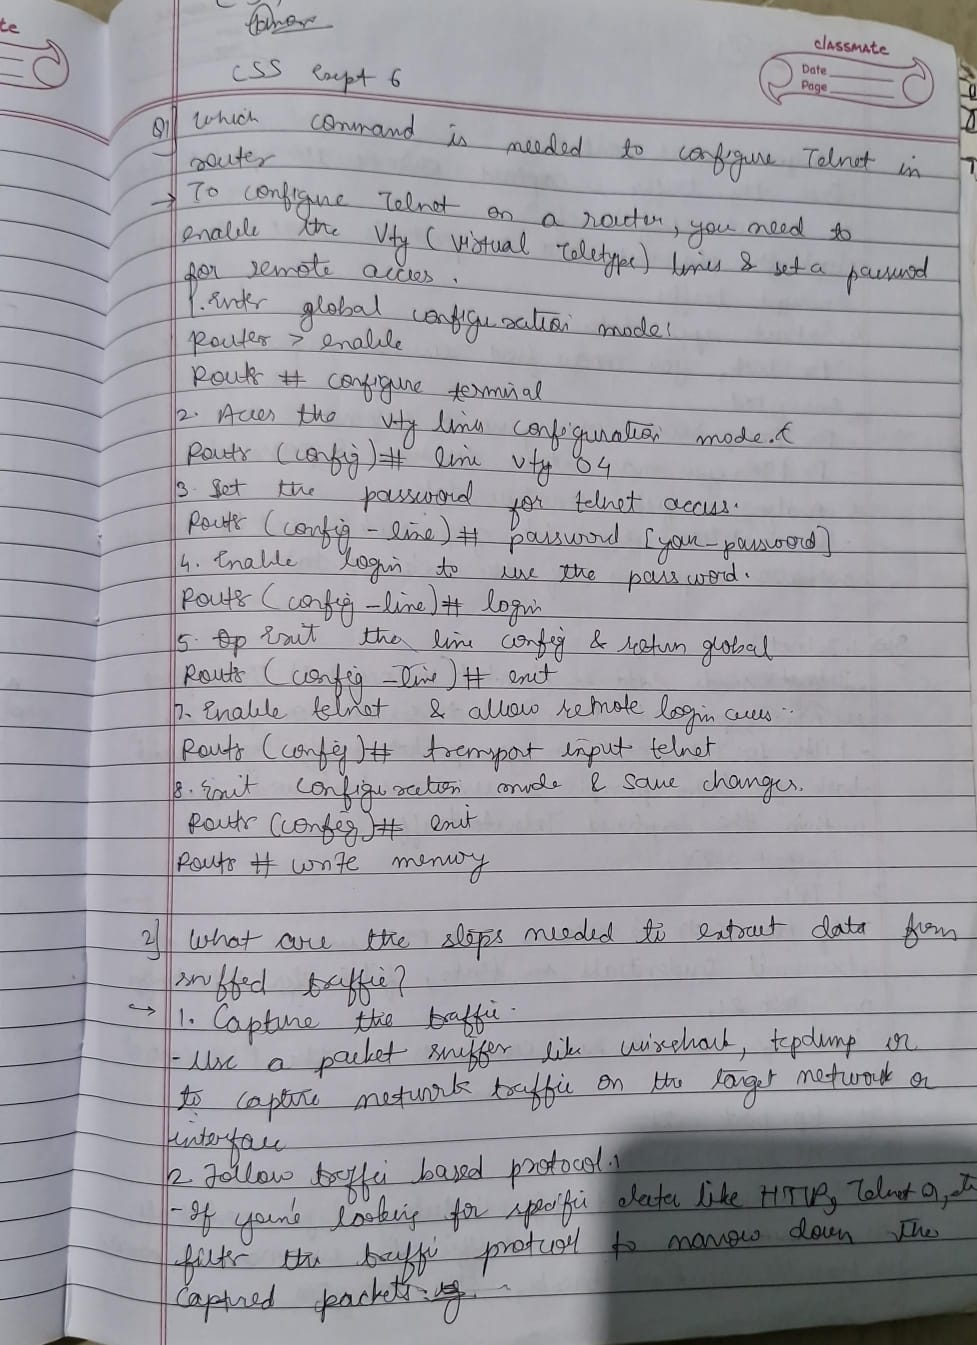 classmate
Date
Page
CSS Expt 6
Q1] Which command is needed to configure Telnet in
router
→ To configure Telnet on a router, you need to
enable the Vty (Virtual Teletype) lines & set a password
for remote access.
1. Enter global configuration mode:
Router > enable
Router # configure terminal
2. Acces the vty line configuration mode.
Router (config)# line vty 04
3. Set the password for telnet access.
Router (config-line)# password [your-password]
4. Enable login to use the password.
Router (config-line)# login
5. Exit the line config & return global
Router (config-line)# exit
7. Enable telnet & allow remote login acces..
Router (config)# transport input telnet
8. Exit configuration mode & save changes.
Router (config)# exit
Router # write memory
2] What are the steps needed to extract data from
sniffed traffic?
→ 1. Capture the traffic.
- Use a packet sniffer like wireshark, tcpdump or
to capture network traffic on the target network or
interface
2. Follow traffic based protocol.
- If you're looking for specific data like HTTP, Telnet
filter the traffic protocol to narrow down the
Captured packets.